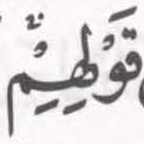 قَوْلِهِمْ